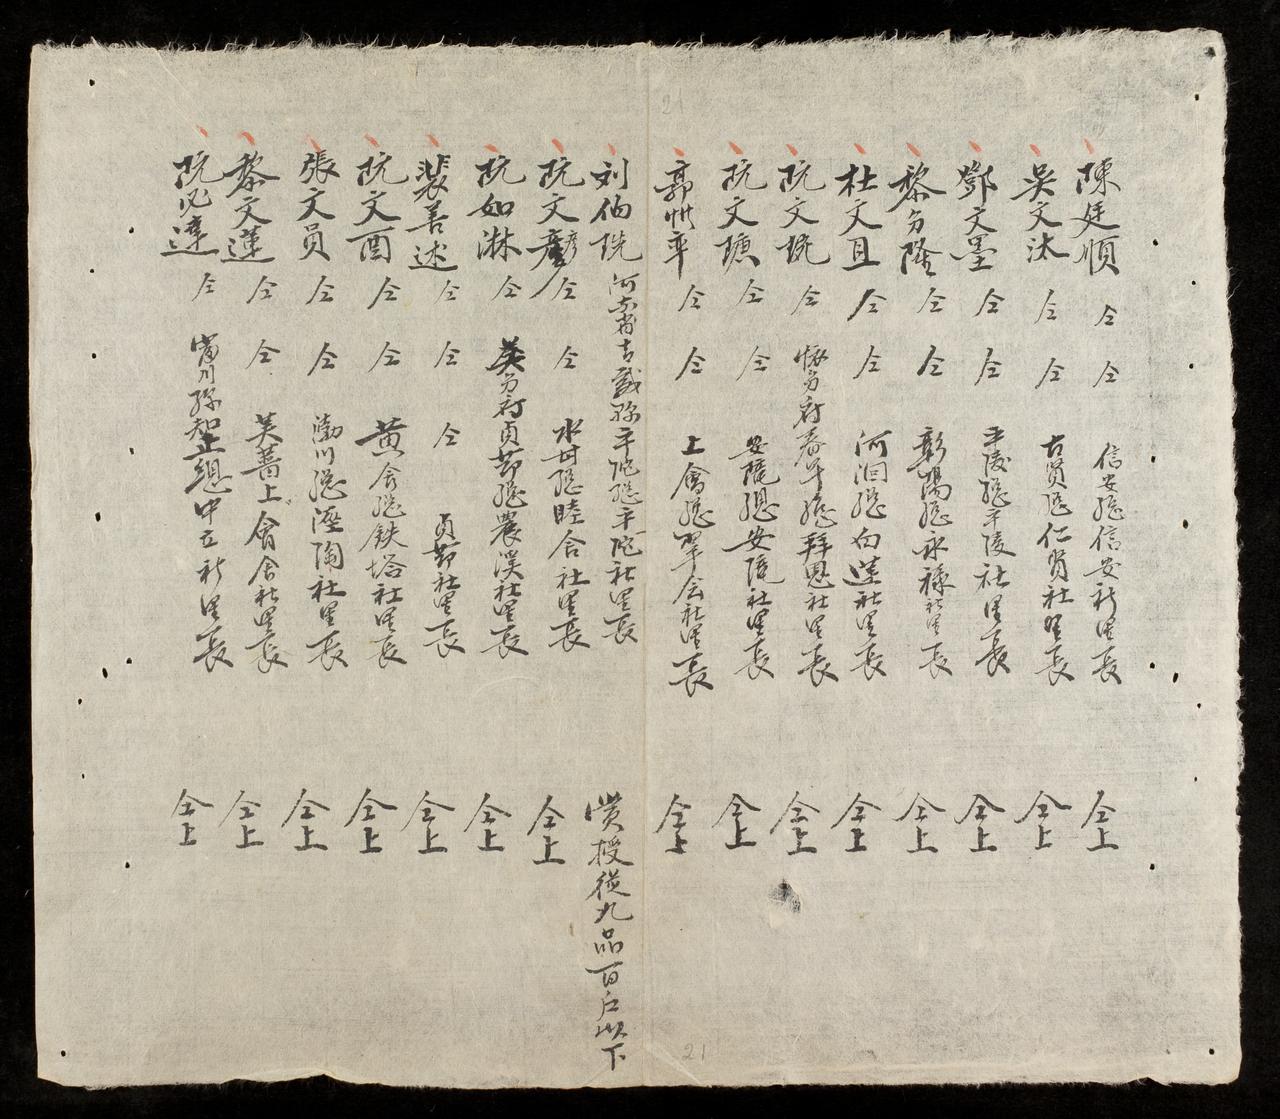 21
陳廷順 仝 仝 信安總信安社里長 仝上
吳文汰 仝 仝 古賢總仁賢社里長 仝上
鄧文墨 仝 仝 平陵總平陵社里長 仝上
黎方隆 仝 仝 彰陽總永祿社里長 仝上
杜文且 仝 仝 河洄總白蓮社里長 仝上
阮文 仝 懷方府春年總拜恩社里長 仝上
阮文 仝 仝 安 總安 社里長 仝上
郭 仝 仝 上會總翠会社里長 仝上
刘伯 河 省古 縣平陀總平陀社里長 賞授從九品百戶以下
阮文彥 仝 仝 水 總睦舍社里長 仝上
阮如淋 仝 英方府貞節總農溪社里長 仝上
裴善述 仝 仝 仝 貞節社里長 仝上
阮文酉 仝 仝 黄舍總鉄塔社里長 仝上
張文員 仝 仝 渤川總 陶社里長 仝上
黎文蓮 仝 仝 芙薔上會舍社里長 仝上
阮 達 仝 富川縣知止總中立社里長 仝上
21